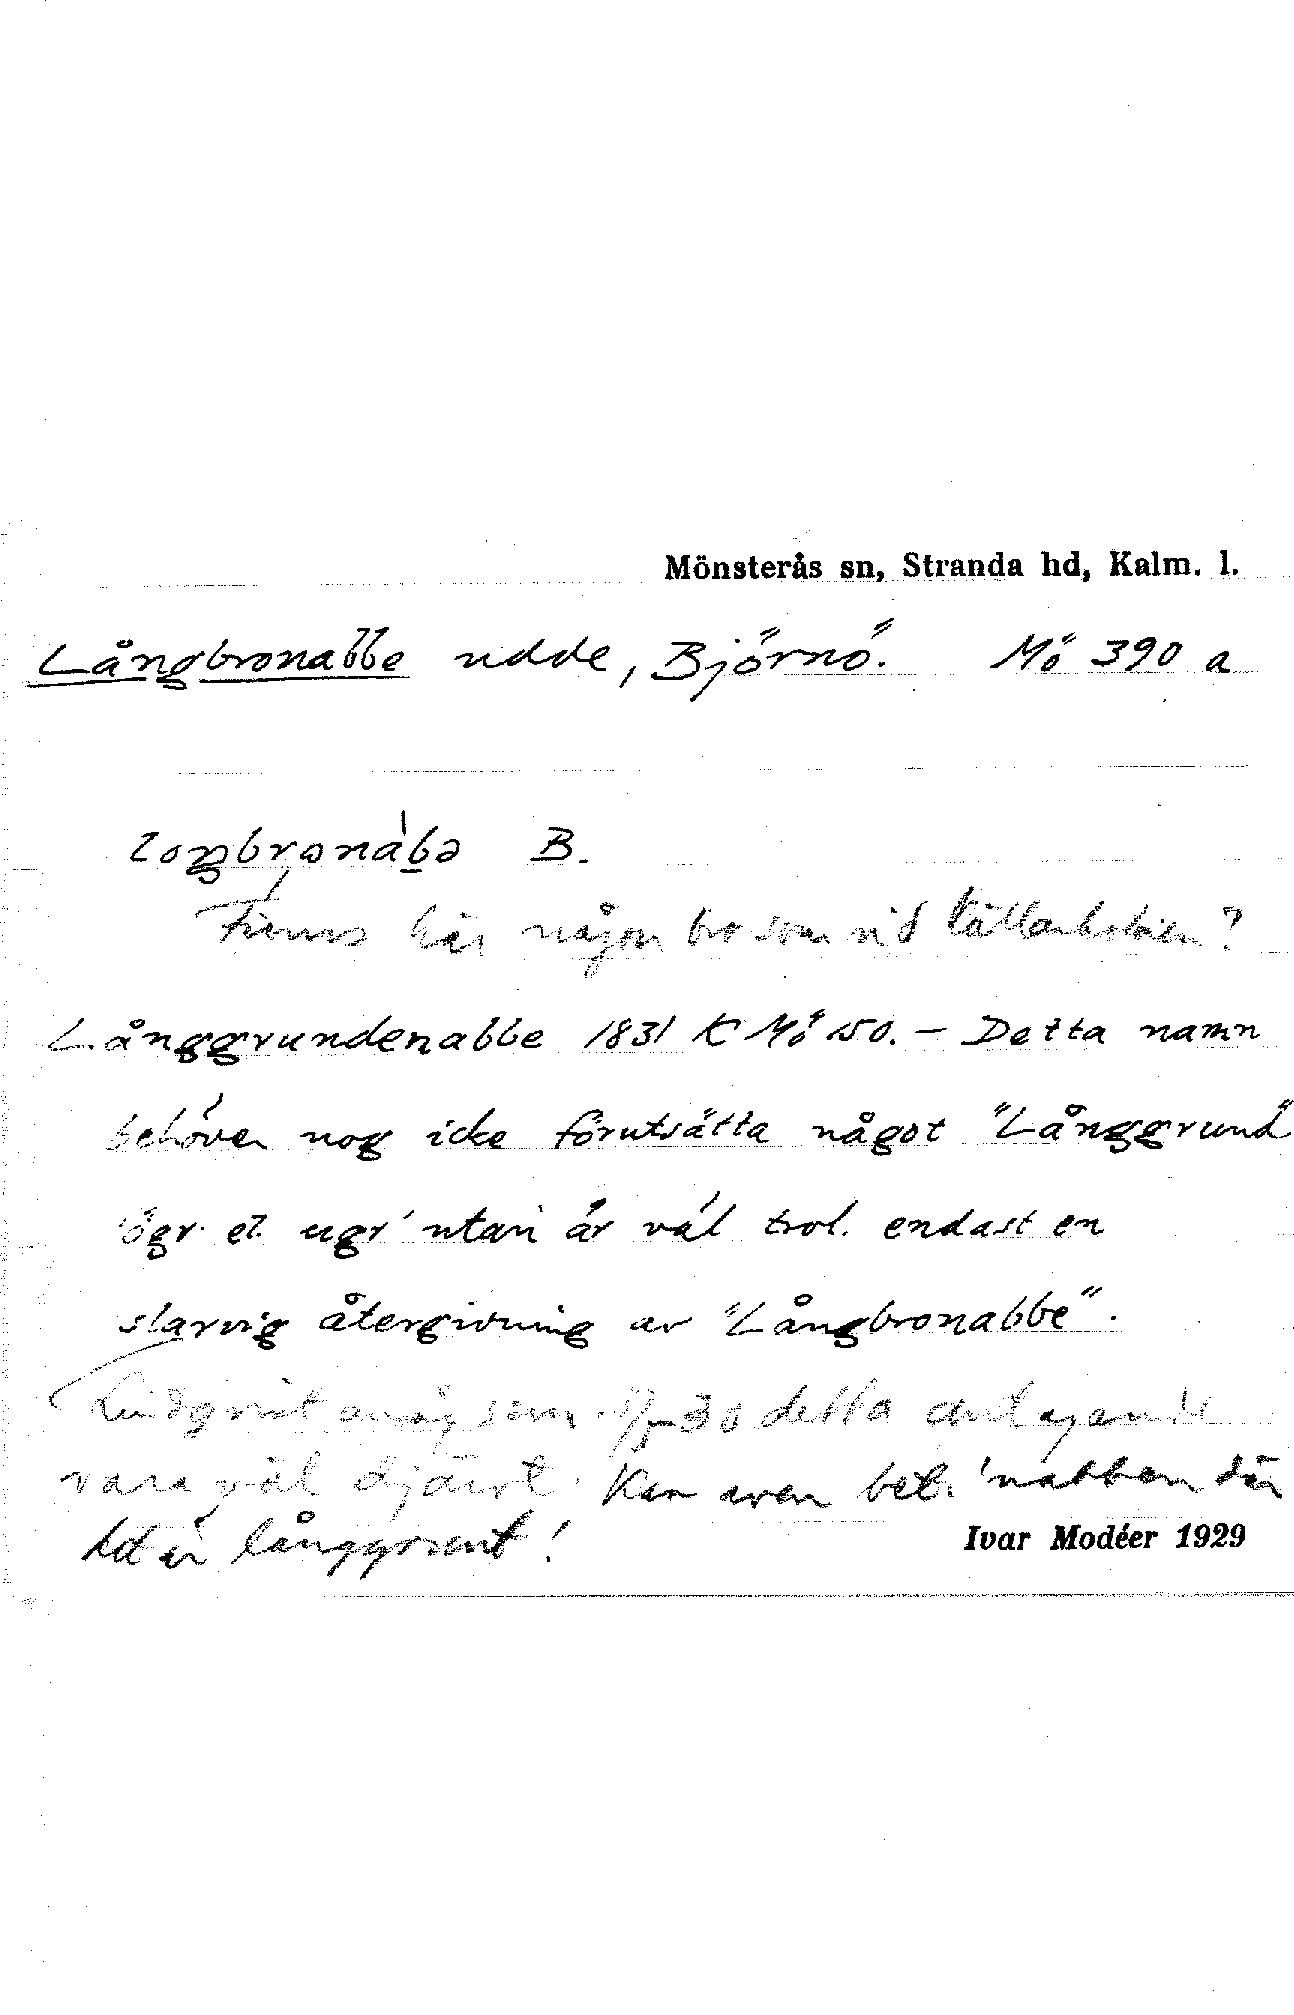 Mönsterås sn, Stranda hd, Kalm. l.
Långbronabbe udde, Björnö. Mö 390 a
loŋbronàbə B.
Finns här någon bro som vid
Långgrundenabbe 1831 K Mö 150. – Detta namn
behöver nog icke förutsätta något "Långgrund"
'ögr. el. ugr' utan är väl trol. endast en
slarvig återgivning av "Långbronabbe".
Lindqvist ansåg sem. 30 detta antagande
vara väl djärvt. Kan även bet. 'nabben där
det är långgrunt'!
Ivar Modéer 1929